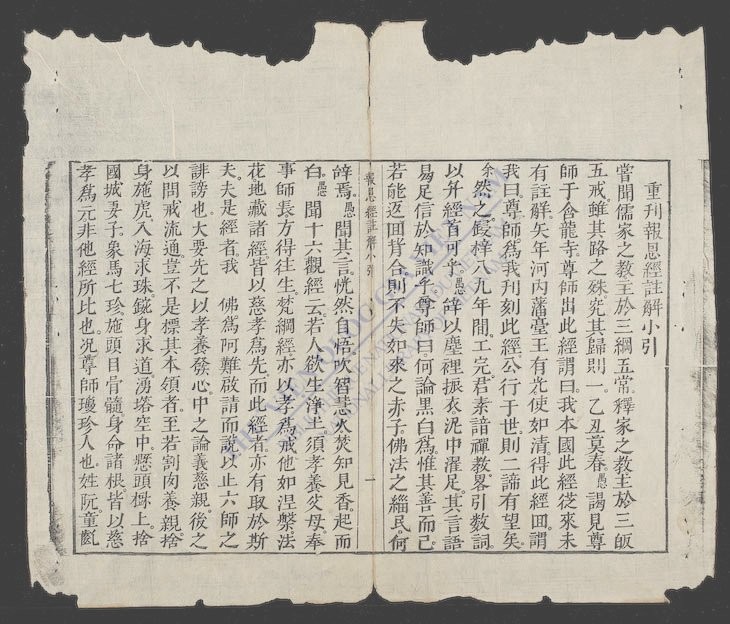 重刊報恩經註解小引
嘗聞儒家之教主於三綱五常。釋家之教主於三皈
五戒。雖其路之殊。究其歸則一。乙丑莫春。愚謁見尊
師于含龍寺。尊師出此經謂曰。我本國此經從來未
有註解矢年河內藩臺王有光使如清。得此經回。謂
我曰。尊師爲我刊刻此經。公行于世。則二諦有望矣。
余然之。假梓八九年間。工完。君素諳禪教。畧引數詞。
以弁經首可乎。愚辭以塵裡振衣。泥中濯足。其言語
曷足信於知識乎。尊師曰。何論黑白爲。惟其善而已。
若能返回背合。則不失如來之赤子。佛法之緇民。何
報恩經註解小引 一
辭焉。愚聞其言。恍然自悟。吹智慧火。焚知見香。起而
白。愚聞十六觀經云。若人欲生淨土。須孝養父母。奉
事師長。方得往生。梵綱經亦以孝爲戒。他如涅槃法
花地藏諸經。皆以慈孝爲先。而此經者。亦有取於斯
夫。夫是經者。我 佛爲阿難啟請而說。以止六師之
誹謗也。大要先之以孝養發心。中之論義慈親。後之
以問戒流通。豈不是標其本領者。至若割肉養親。捨
身施虎。入海求珠。身求道。湧塔空中。懸頭樹上。捨
國城妻子。象馬七珍。施頭目骨髓。身命諸根。皆以慈
孝爲元。非他經所比也。况尊師瓊珍人也。姓阮。童齔